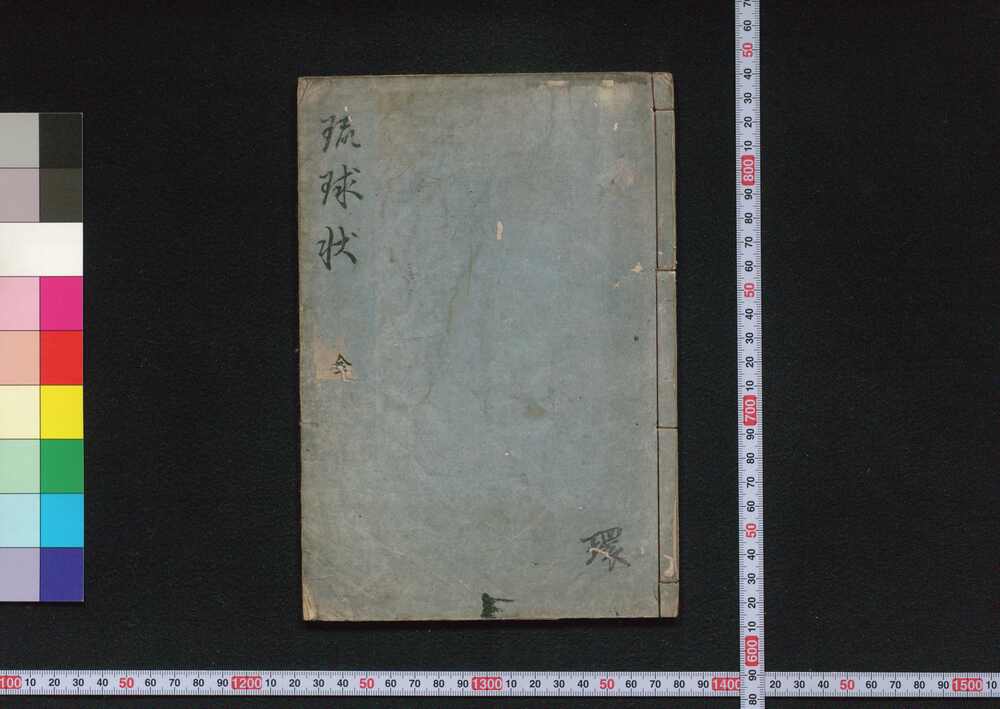 琉球状
全
環
70
60
50
40
30
20
10
800
90
80
70
60
50
40
30
20
10
700
90
80
70
60
50
40
30
20
10
600
90
80
100 10 20 30 40 50 60 70 80 90 1200 10 20 30 40 50 60 70 80 90 1300 10 20 30 40 50 60 70 80 90 1400 20 30 40 50 60 70 80 90 1500 10